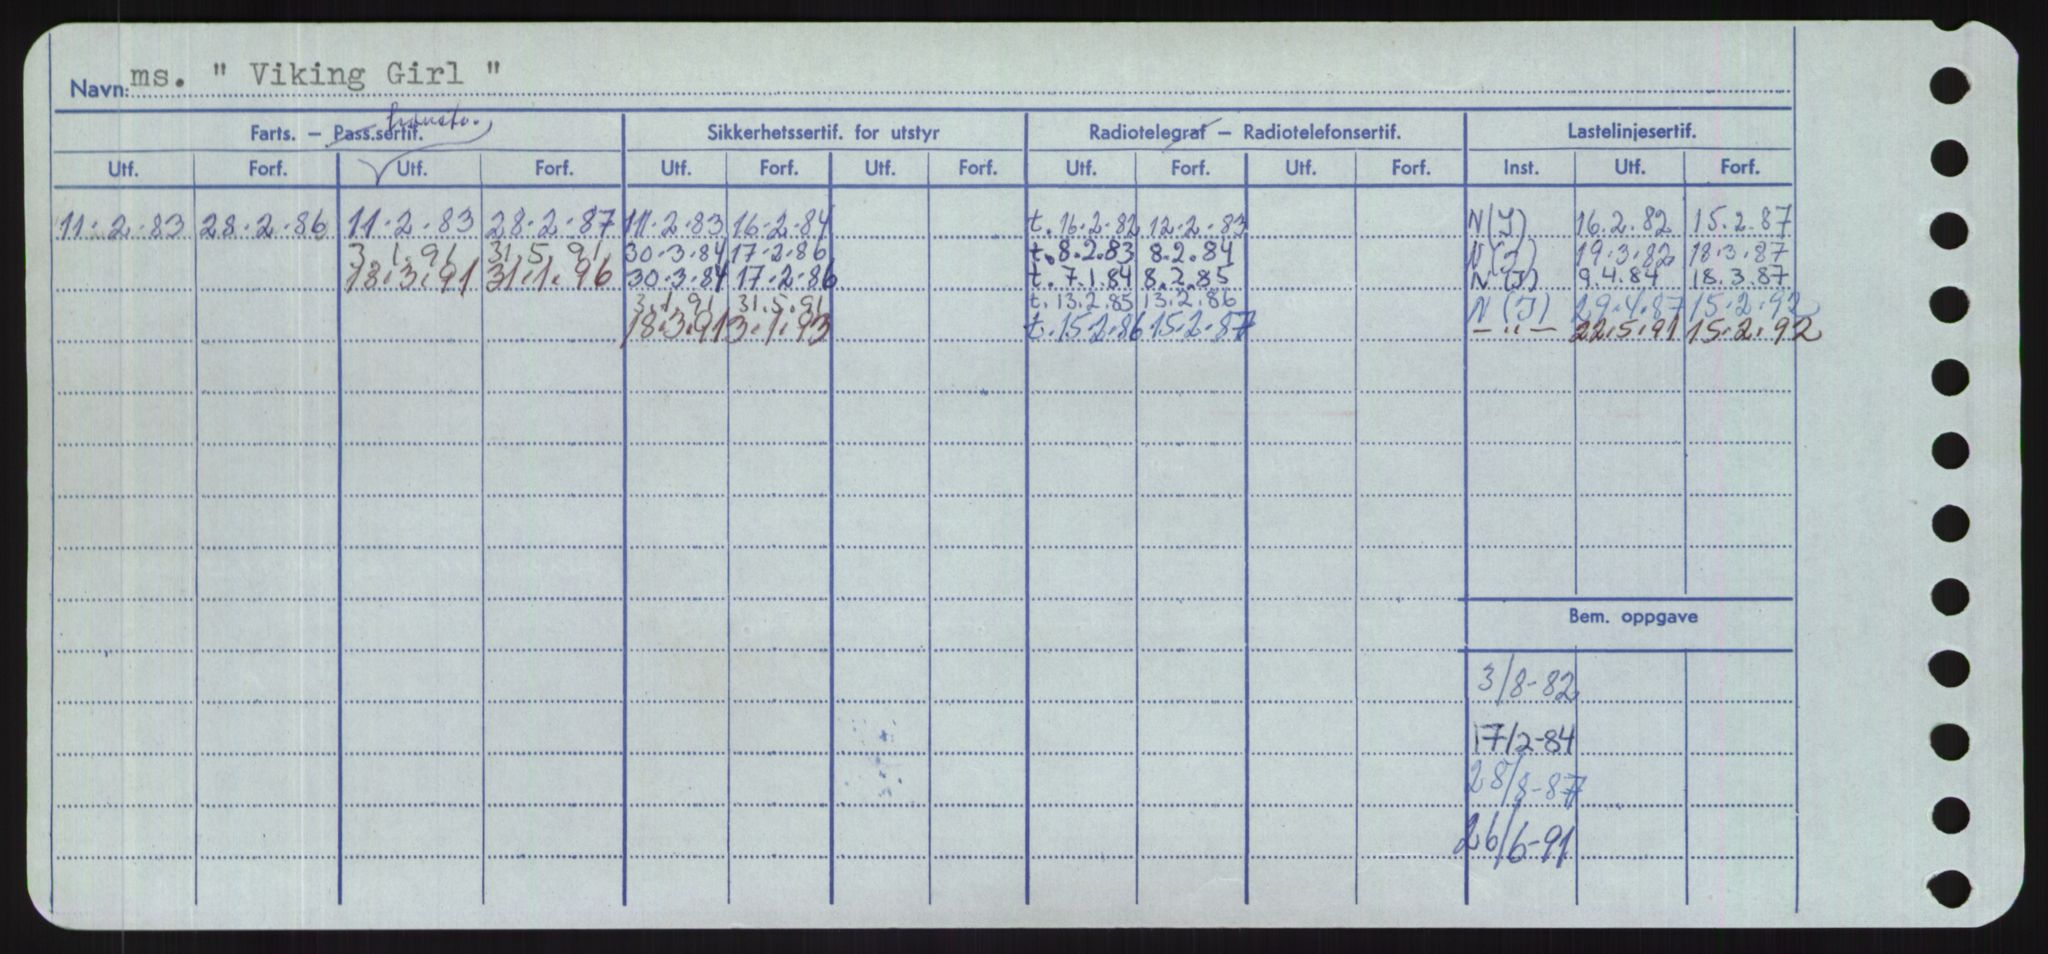 Navn: ms. " Viking Girl "
Farts. – Pass.sertif. Sikkerhetssertif. for utstyr Radiotelegraf – Radiotelefonsertif. Lastelinjesertif.
Utf. Forf. Utf. Forf. Utf. Forf. Utf. Forf. Utf. Forf. Utf. Forf. Inst. Utf. Forf.
11.2.83 28.2.86 11.2.83 28.2.87 11.2.83 16.2.84 t. 16.2.82 12.2.83 N(I) 16.2.82 15.2.87
3.1.91 31.5.91 30.3.84 17.2.86 t. 8.2.83 8.2.84 N(I) 19.3.82 18.3.87
18.3.91 31.1.96 30.3.84 17.2.86 t. 7.1.84 8.2.85 N(I) 9.4.84 18.3.87
3.1.91 31.5.91 t. 13.2.85 13.2.86 N(I) 29.4.87 15.2.92
18.3.91 3.1.93 t. 15.2.86 15.2.87 —"— 22.5.91 15.2.92
Bem. oppgave
3/8-82
17/2-84
28/8-87
26/6-91